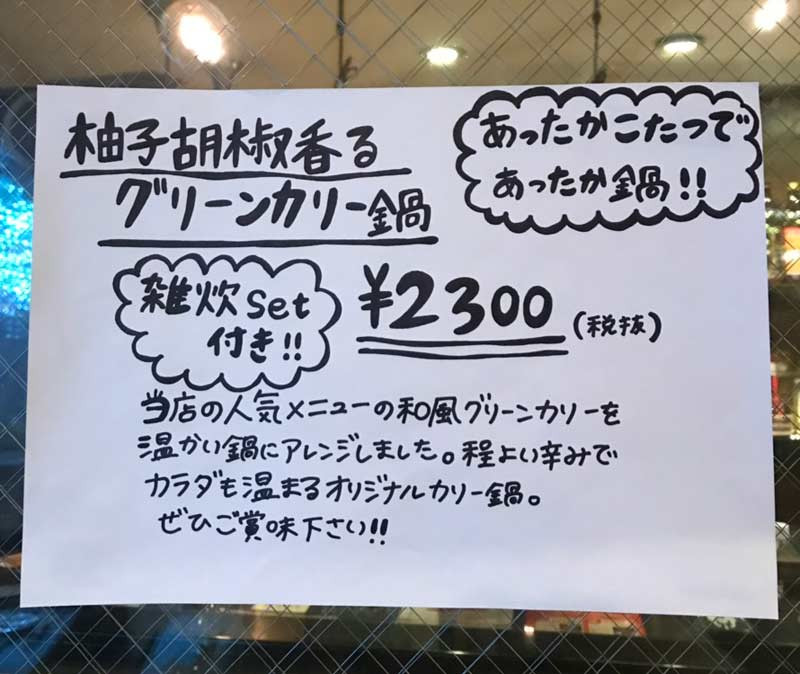 柚子胡椒香る
グリーンカリー鍋
あったかこたつで
あったか鍋!!
雑炊set
付き!!
¥2300
(税抜)
当店の人気メニューの和風グリーンカリーを
温かい鍋にアレンジしました。程よい辛みで
カラダも温まるオリジナルカリー鍋。
ぜひご賞味下さい!!